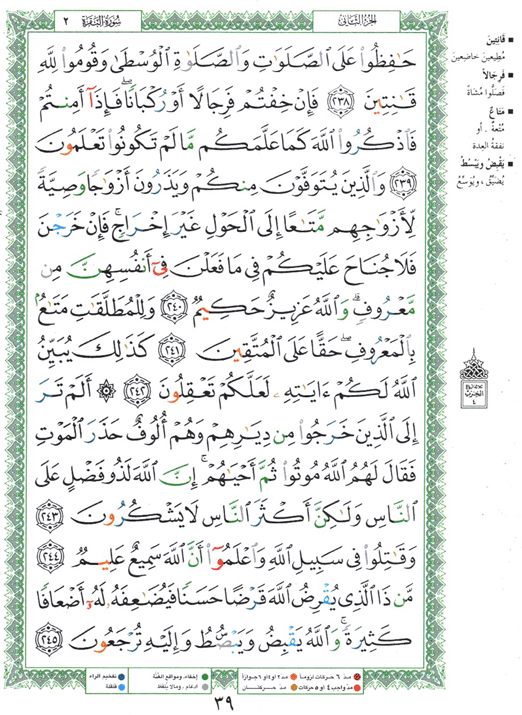 سُورَةُ البَقَرَة ٢
الجزء الثاني
حَـٰفِظُوا۟ عَلَى ٱلصَّلَوَٰتِ وَٱلصَّلَوٰةِ ٱلْوُسْطَىٰ وَقُومُوا۟ لِلَّهِ
قَـٰنِتِينَ ٢٣٨ فَإِنْ خِفْتُمْ فَرِجَالًا أَوْ رُكْبَانًا ۖ فَإِذَآ أَمِنتُمْ
فَٱذْكُرُوا۟ ٱللَّهَ كَمَا عَلَّمَكُم مَّا لَمْ تَكُونُوا۟ تَعْلَمُونَ
٢٣٩ وَٱلَّذِينَ يُتَوَفَّوْنَ مِنكُمْ وَيَذَرُونَ أَزْوَٰجًا وَصِيَّةً
لِّأَزْوَٰجِهِم مَّتَـٰعًا إِلَى ٱلْحَوْلِ غَيْرَ إِخْرَاجٍ ۚ فَإِنْ خَرَجْنَ
فَلَا جُنَاحَ عَلَيْكُمْ فِى مَا فَعَلْنَ فِىٓ أَنفُسِهِنَّ مِن
مَّعْرُوفٍ ۗ وَٱللَّهُ عَزِيزٌ حَكِيمٌ ٢٤٠ وَلِلْمُطَلَّقَـٰتِ مَتَـٰعٌۢ
بِٱلْمَعْرُوفِ ۖ حَقًّا عَلَى ٱلْمُتَّقِينَ ٢٤١ كَذَٰلِكَ يُبَيِّنُ
ٱللَّهُ لَكُمْ ءَايَـٰتِهِۦ لَعَلَّكُمْ تَعْقِلُونَ ٢٤٢ ۞ أَلَمْ تَرَ
إِلَى ٱلَّذِينَ خَرَجُوا۟ مِن دِيَـٰرِهِمْ وَهُمْ أُلُوفٌ حَذَرَ ٱلْمَوْتِ
فَقَالَ لَهُمُ ٱللَّهُ مُوتُوا۟ ثُمَّ أَحْيَـٰهُمْ ۚ إِنَّ ٱللَّهَ لَذُو فَضْلٍ عَلَى
ٱلنَّاسِ وَلَـٰكِنَّ أَكْثَرَ ٱلنَّاسِ لَا يَشْكُرُونَ ٢٤٣
وَقَـٰتِلُوا۟ فِى سَبِيلِ ٱللَّهِ وَٱعْلَمُوٓا۟ أَنَّ ٱللَّهَ سَمِيعٌ عَلِيمٌ ٢٤٤
مَّن ذَا ٱلَّذِى يُقْرِضُ ٱللَّهَ قَرْضًا حَسَنًا فَيُضَـٰعِفَهُۥ لَهُۥٓ أَضْعَافًا
كَثِيرَةً ۚ وَٱللَّهُ يَقْبِضُ وَيَبْصُۜطُ وَإِلَيْهِ تُرْجَعُونَ ٢٤٥
■ قَانِتِينَ
مُطِيعِينَ خَاضِعِينَ
■ فَرِجَالاً
فَصَلُّوا مُشَاةً
■ مَتَاعٌ
مُتْعَةٌ. أو
نفقةُ العِدة
■ يَقْبِضُ وَيَبْسُطُ
يُضَيِّقُ، وَيُوَسِّعُ
الحزب
٤
مدّ ٦ حركات لزوماً
مدّ ٢ أو ٤ أو ٦ جوازاً
إخفاء، ومواقع الغُنَّة
تفخيم الراء
مدّ واجب ٤ أو ٥ حركات
مدّ حركتـان
ادغام، ومالا يُلفَظ
قلقلة
٣٩